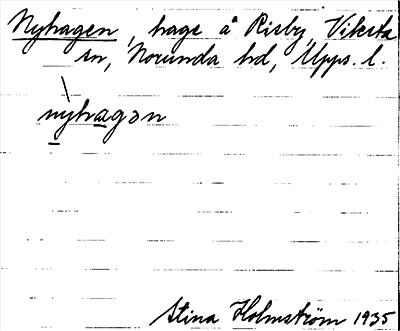 Nyhagen, hage å Risby, Viksta
sn, Norunda hd, Upps. l.
nỳhagən
Stina Holmström 1935